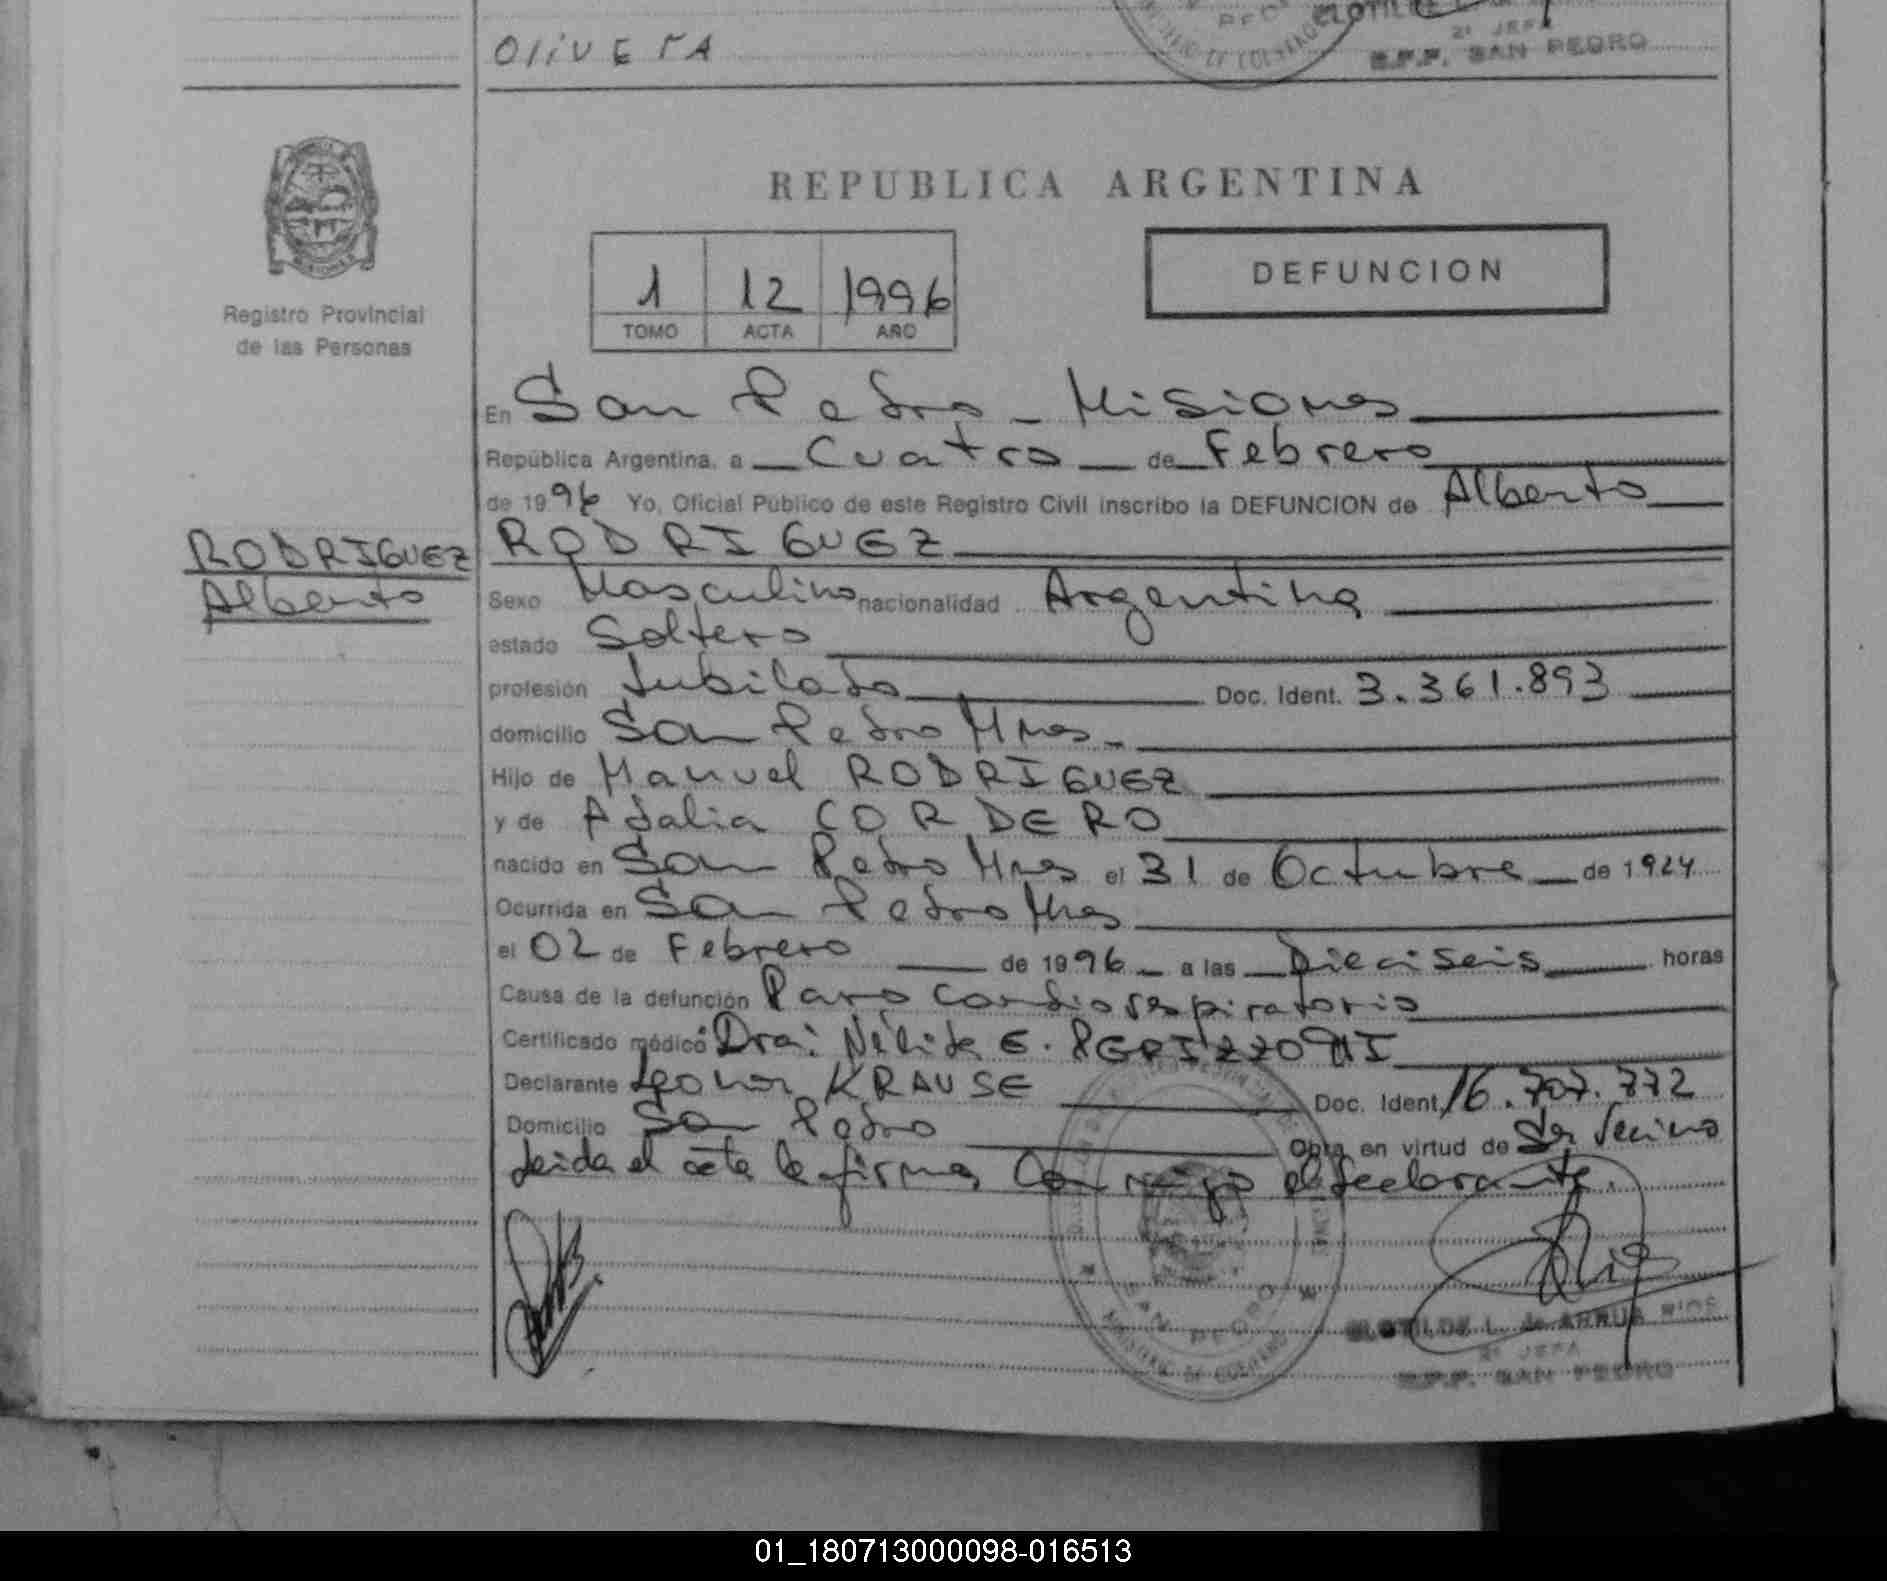 OLIVERA
SAN PEDRO
REPUBLICA ARGENTINA
1 12 1996
TOMO ACTA AÑO
DEFUNCION
Registro Provincial
de las Personas
En San Pedro - Misiones
República Argentina, a Cuatro de Febrero
de 1996 Yo, Oficial Público de este Registro Civil inscribo la DEFUNCION de Alberto
RODRIGUEZ
RODRIGUEZ
Alberto
Sexo Masculino nacionalidad Argentina
estado Soltero
profesión Jubilado Doc. Ident. 3.361.893
domicilio San Pedro Mnes
Hijo de Manuel RODRIGUEZ
y de Adalia CORDERO
nacido en San Pedro Mnes el 31 de Octubre de 1924
Ocurrida en San Pedro Mnes
el 02 de Febrero de 1996 a las Dieciseis horas
Causa de la defunción Paro cardiorespiratorio
Certificado médico Dra: Nélida E.
Declarante Leonor KRAUSE Doc. Ident. 16.707.772
Domicilio San Pedro Obra en virtud de Ser Vecino
Leida el acta la firma conmigo el declarante.
SAN PEDRO
CLOTILDE L. de ARRUA RIOS
2ª JEFA
SAN PEDRO
01_180713000098-016513